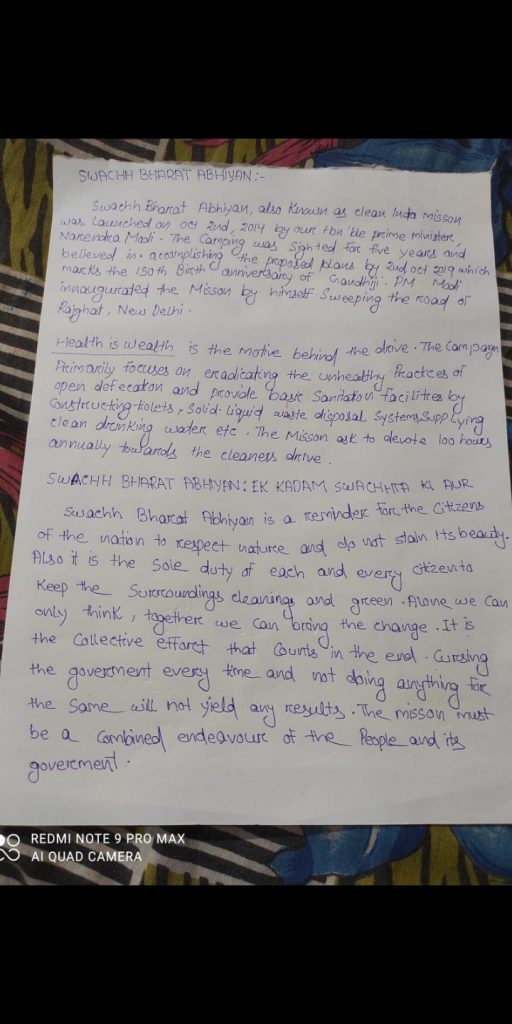 SWACHH BHARAT ABHIYAN:-
Swachh Bharat Abhiyan, also Known as clean Inda misson
was Launched on oct 2nd, 2014 by our Hon'ble prime minister,
Narendra Modi. The Camping was Sighted for five years and
believed in accomplishing the proposed plans by 2nd oct 2019 which
marks the 150th Birth anniversary of Gandhiji. PM Modi
innaugurated the Misson by himself Sweeping the road of
Rajghat, New Delhi.
Health is wealth is the motive behind the drive. The Campagn
Primarily focuses on eradicating the unhealthy Practices of
open defecaton and provide basic Sanitation facilities by
Constructing tolets, Solid-liquid waste disposal Systems, Supplying
clean drinking water etc. The Misson ask to devote 100 hours
annually towards the cleaness drive.
SWACHH BHARAT ABHIYAN: EK KADAM SWACHHTA KI AUR
Swachh Bharat Abhiyan is a reminder for the Citizens
of the nation to respect nature and do not stain its beauty.
Also it is the Sole duty of each and every citizen to
Keep the Surroundings cleanings and green. Alone we can
only think, together we can bring the change. It is
the Collective effort that Counts in the end. Cursing
the goverment every time and not doing anything for
the Same will not yield any results. The misson must
be a Combined endeavour of the People and its
goverement.
REDMI NOTE 9 PRO MAX
AI QUAD CAMERA